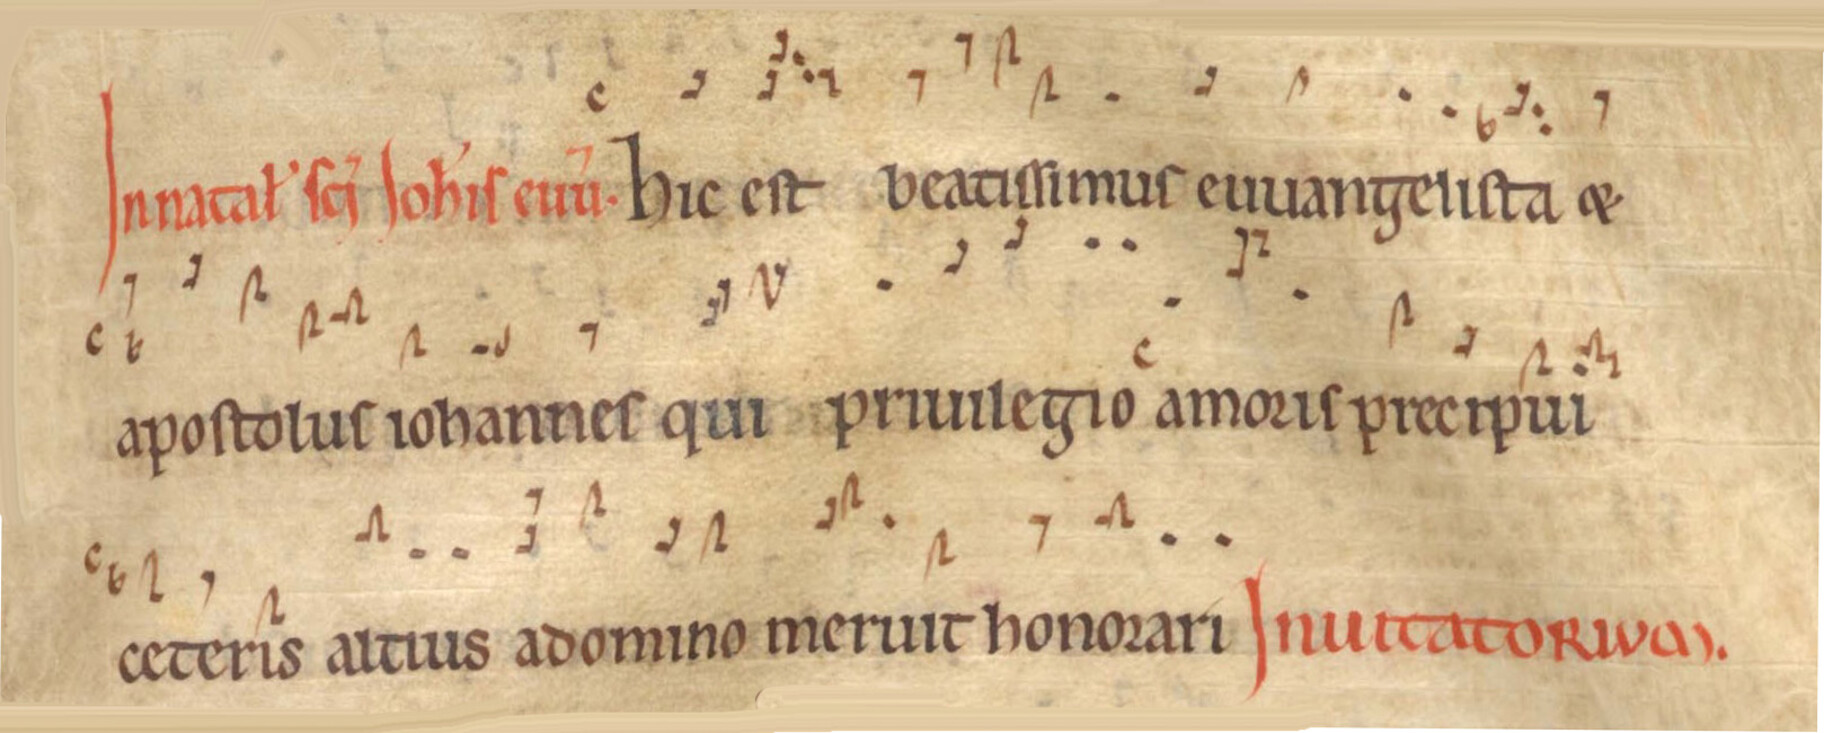 In natal' sc̄i Joh'is euū. hic est beatissimus euuangelista &
apostolus iohannes qui priuilegio amoris precipui
ceteris altius a domino meruit honorari Inuitatorium.